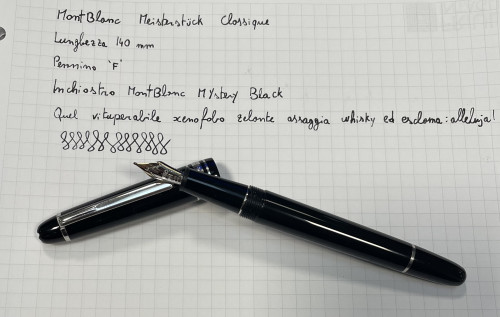 MontBlanc Meisterstück Classique
Lunghezza 140 mm
Pennino "F"
Inchiostro MontBlanc Mystery Black
Quel vituperabile xenofobo zelante assaggia whisky ed esclama: alleluja!